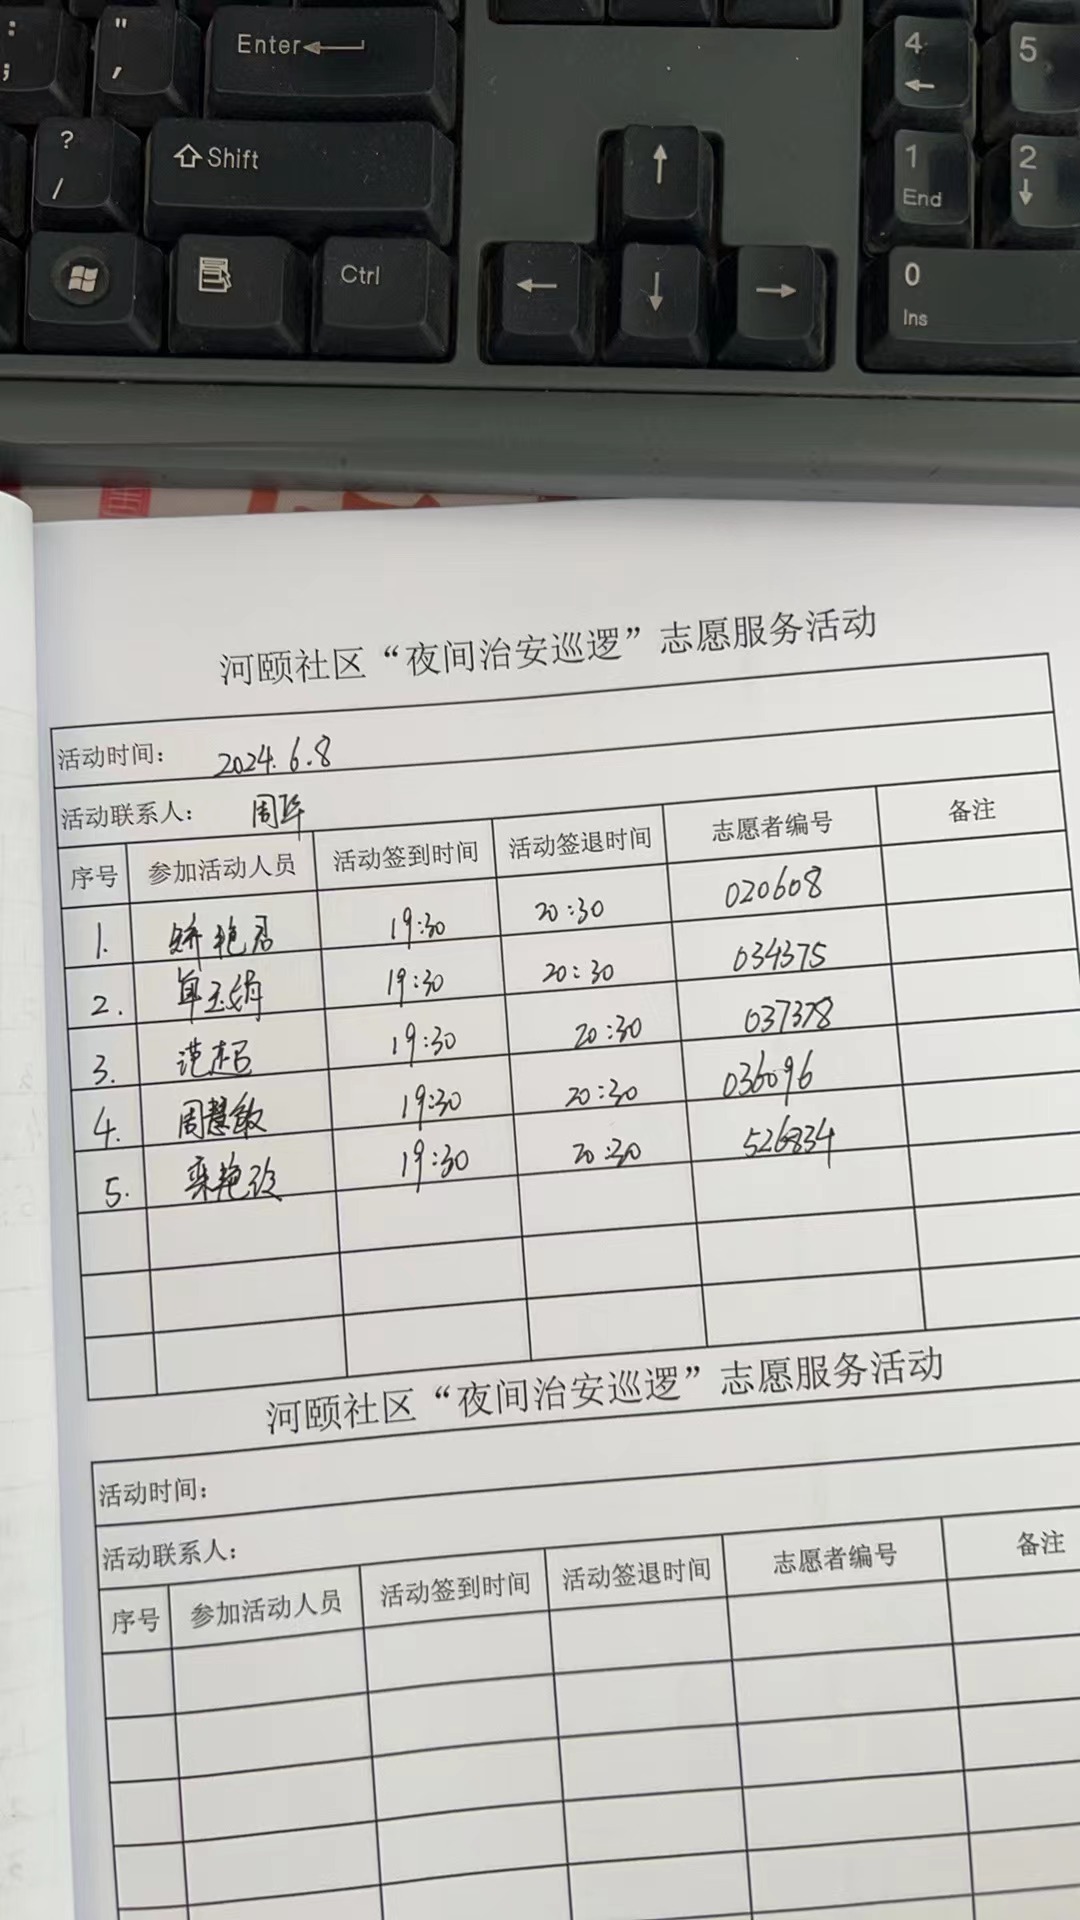 : "
; ,
Enter
4 5
?
/
Shift
1 2
End
Ctrl
0
Ins
河颐社区“夜间治安巡逻”志愿服务活动
活动时间： 2024.6.8
活动联系人： 周
序号 参加活动人员 活动签到时间 活动签退时间 志愿者编号 备注
1. 娇艳君 19:30 20:30 020608
2. 单玉娟 19:30 20:30 034375
3. 范超 19:30 20:30 037378
4. 周慧敏 19:30 20:30 036096
5. 栾艳 19:30 20:30 526834
河颐社区“夜间治安巡逻”志愿服务活动
活动时间：
活动联系人：
序号 参加活动人员 活动签到时间 活动签退时间 志愿者编号 备注